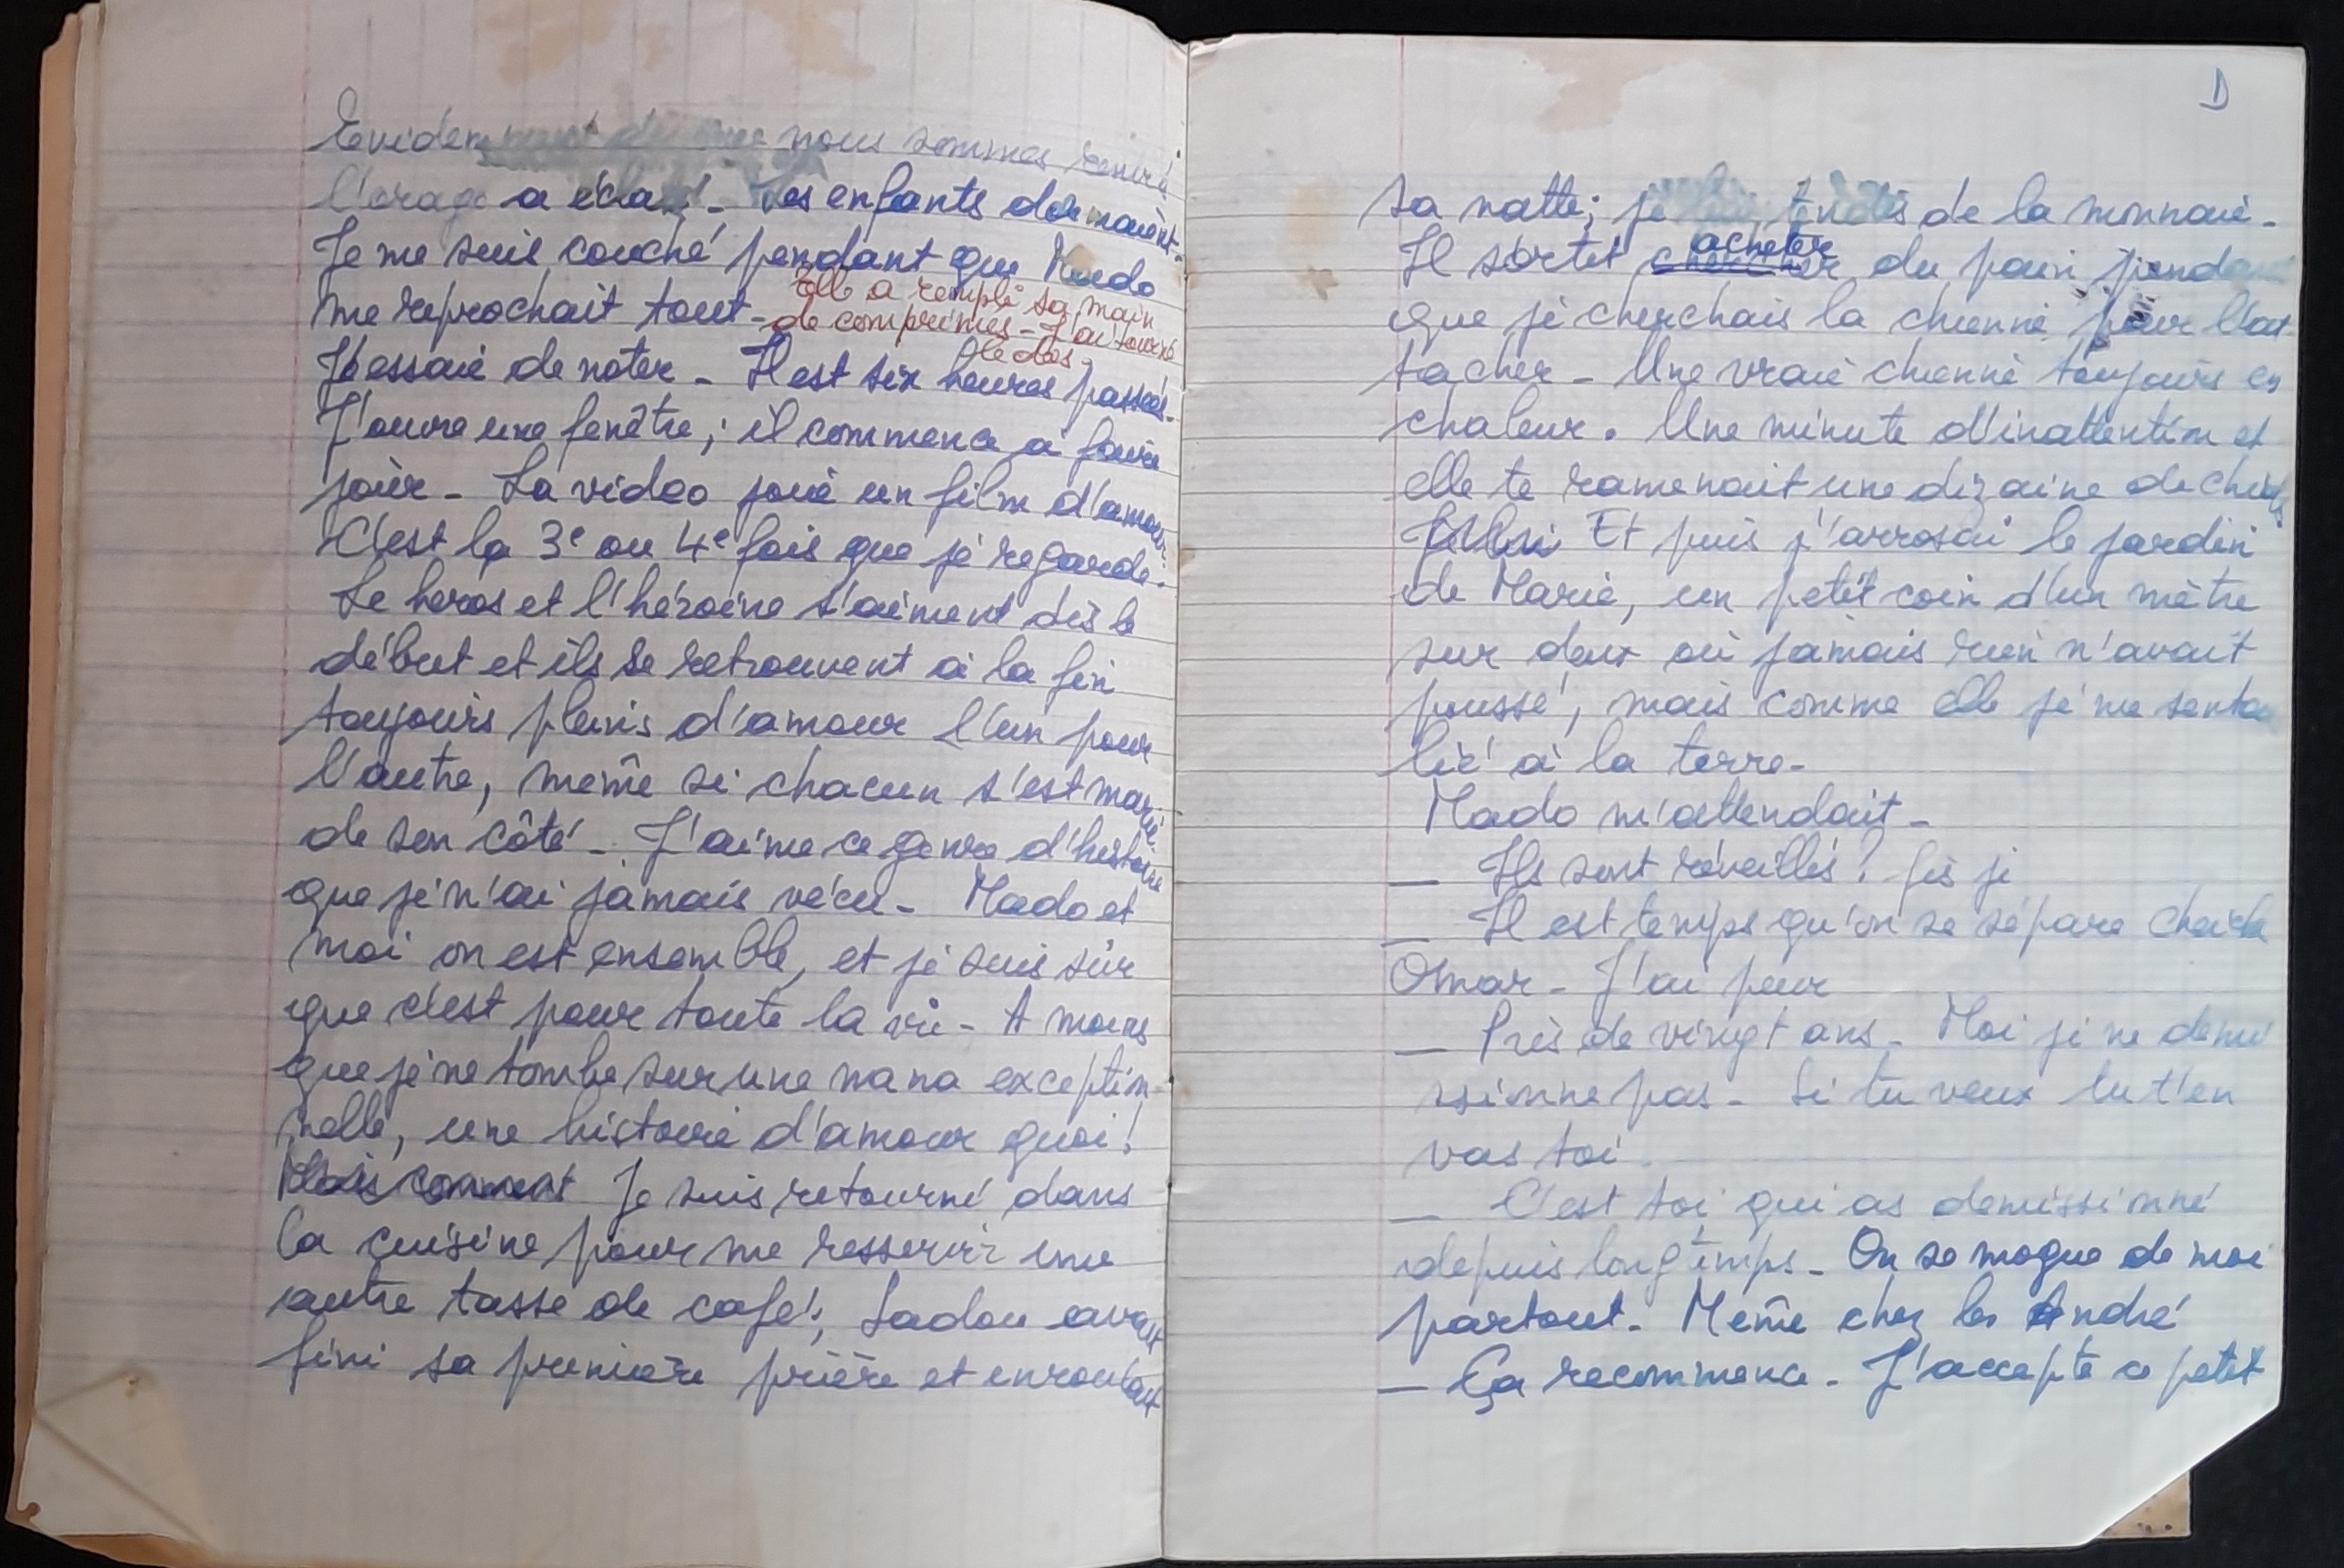 Evidemment nous sommes rentré
l'orage a éclaté - Les enfants dormaient -
Je me suis couché pendant que Mado
me reprochait tout - Elle a rempli sa main
de comprimés - J'ai tourné
le dos -
J'essaie de noter - Il est six heures passées -
J'ouvre une fenêtre ; il commence à faire
jour - La video joue un film d'amour -
C'est la 3e ou 4e fois que je regarde -
Le heros et l'héroïne s'aiment dès le
début et ils se retrouvent à la fin
toujours pleins d'amour l'un pour
l'autre, même si chacun s'est marié
de son côté - J'aime ce genre d'histoire
que je n'ai jamais vécu - Mado et
moi on est ensemble, et je suis sûr
que c'est pour toute la vie - A moins
que je ne tombe sur une nana exception-
nelle, une histoire d'amour quoi !
Mais comment Je suis retourné dans
la cuisine pour me resservir une
autre tasse de café ; Ladou avait
fini sa première prière et enroulait
D
sa natte ; je lui tendis de la monnaie -
Il sortit chercher acheter du pain pendant
que je cherchais la chienne pour l'at-
tacher - Une vraie chienne toujours en
chaleur . Une minute d'inattention et
elle te ramenait une dizaine de chiots
Et puis j'arrosai le jardin
de Marie, un petit coin d'un mètre
sur deux où jamais rien n'avait
poussé, mais comme elle je me sentais
lié à la terre -
Mado m'attendait -
— Ils sont réveillés ? fis je
— Il est temps qu'on se sépare Cheick
Omar - J'ai peur
— Près de vingt ans - Moi je ne demi
ssionne pas - Si tu veux tu t'en
vas toi .
— C'est toi qui as demissionné
depuis longtemps - On se moque de moi
partout - Même chez les André
— Ça recommence - J'accepte ce petit